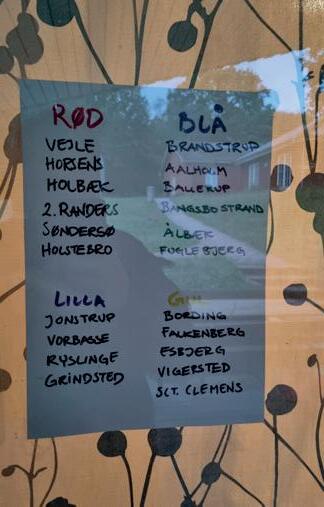 RØD
VEJLE
HORSENS
HOLBÆK
2. RANDERS
SØNDERSØ
HOLSTEBRO
BLÅ
BRANDSTRUP
AALHOLM
BALLERUP
BANGSBO STRAND
ÅLBÆK
FUGLEBJERG
LILLA
JONSTRUP
VORBASSE
RYSLINGE
GRINDSTED
GUL
BORDING
FALKENBERG
ESBJERG
VIGERSTED
SCT. CLEMENS